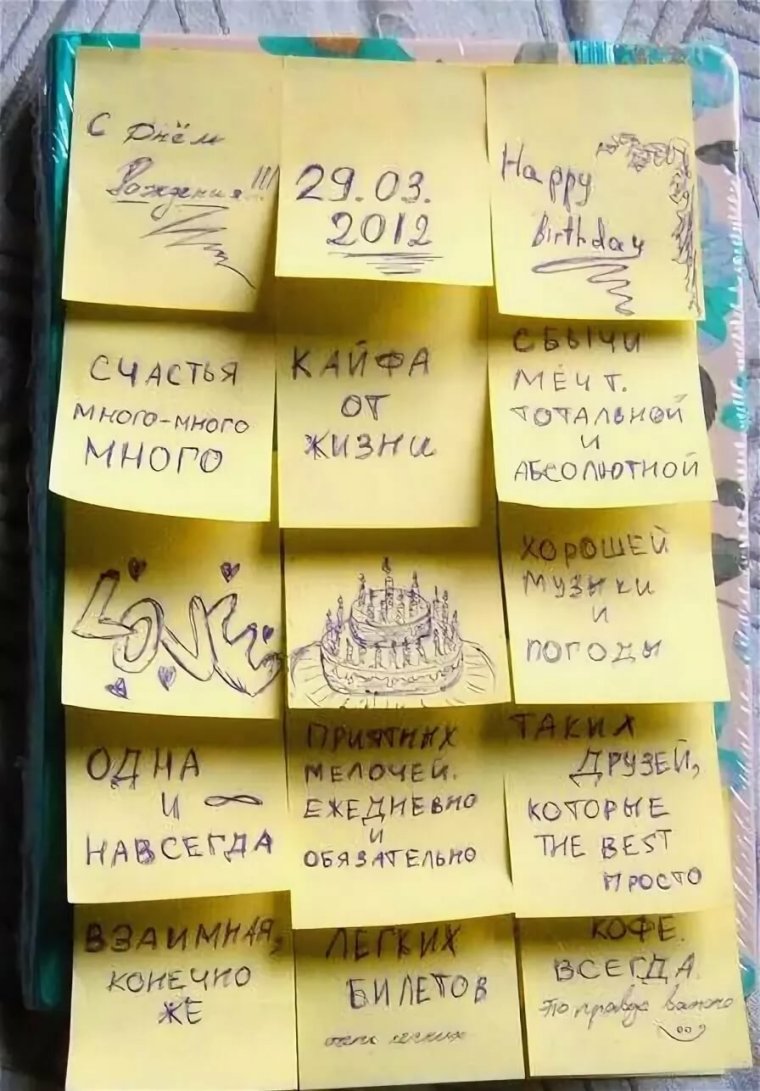 С Днём
Рождения!!!
29.03.
2012
Happy
Birthday
СЧАСТЬЯ
МНОГО-МНОГО
МНОГО
КАЙФА
ОТ
ЖИЗНИ
СБЫЧИ
МЕЧТ.
ТОТАЛЬНОЙ
И
АБСОЛЮТНОЙ
LOVE
ХОРОШЕЙ
МУЗЫКИ
И
ПОГОДЫ
ОДНА
И ∞
НАВСЕГДА
ПРИЯТНЫХ
МЕЛОЧЕЙ.
ЕЖЕДНЕВНО
И
ОБЯЗАТЕЛЬНО
ТАКИХ
ДРУЗЕЙ,
КОТОРЫЕ
THE BEST
ПРОСТО
ВЗАИМНАЯ,
КОНЕЧНО
ЖЕ
ЛЕГКИХ
БИЛЕТОВ
очень легких
КОФЕ.
ВСЕГДА.
Это правда важно